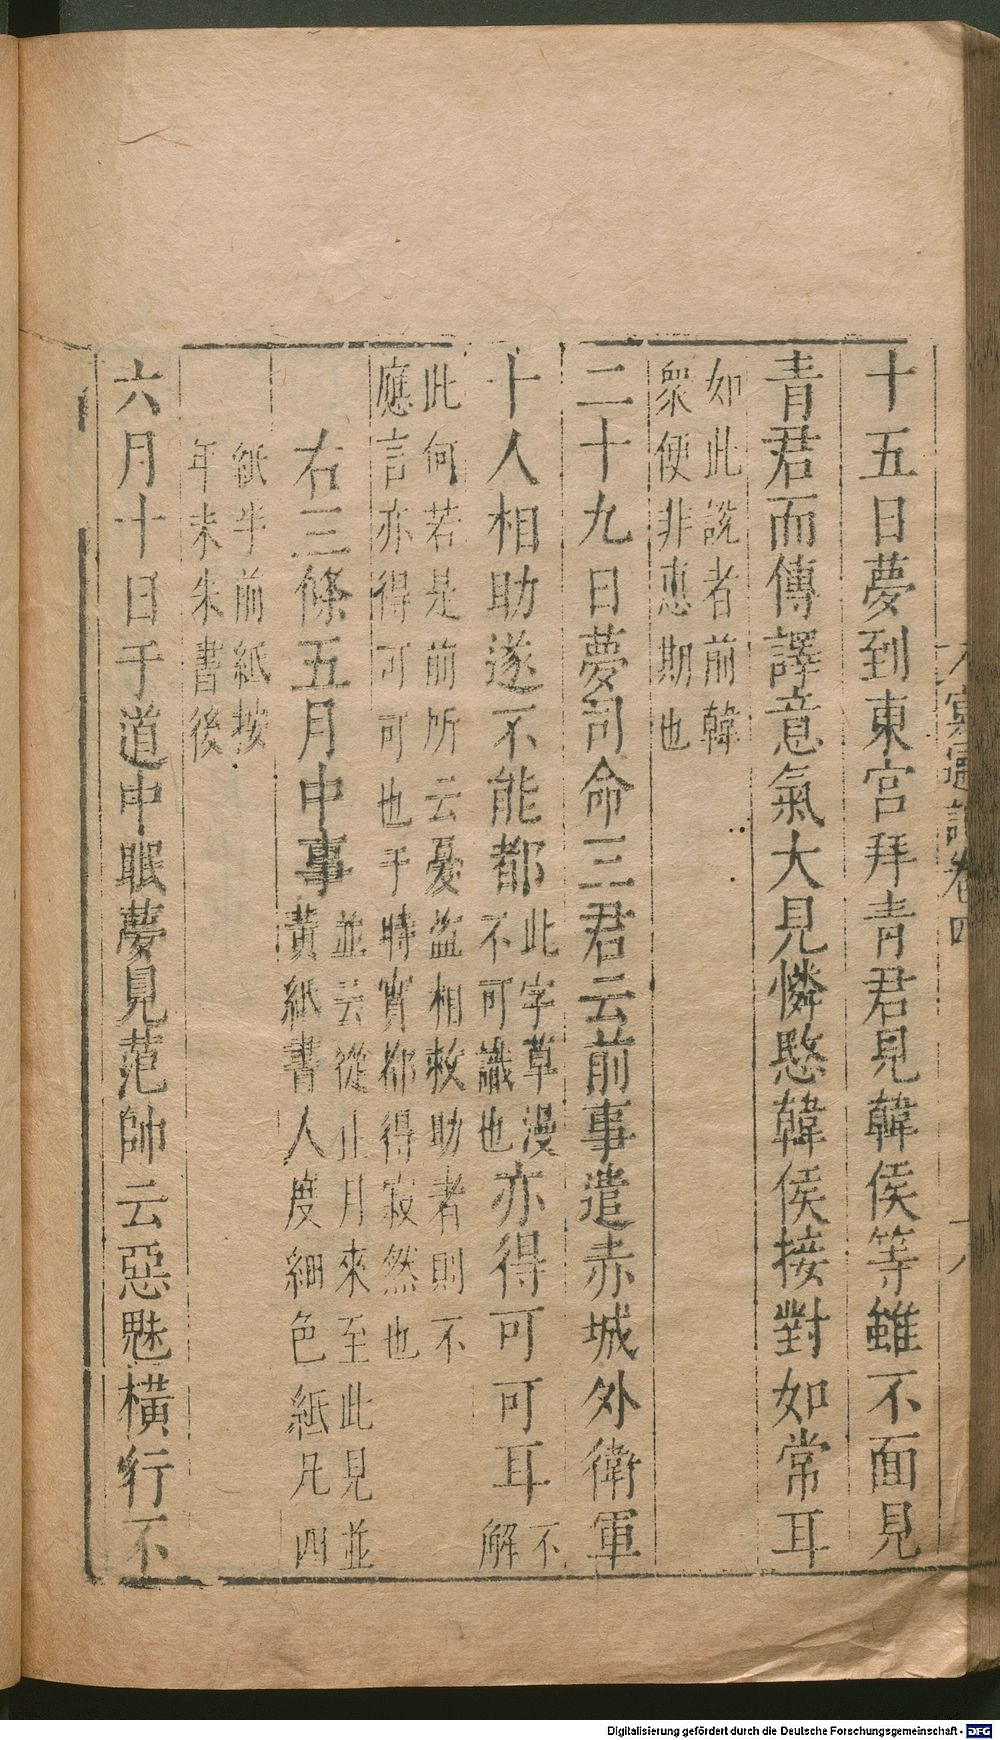 冥通記卷四
十五日夢到東宮拜青君見韓侯等雖不面見
青君而傳譯意氣大見憐愍韓侯接對如常耳
如此說者前韓
衆便非恵期也
二十九日夢司命三君云前事遣赤城外衛軍
十人相助遂不能都
此字草漫
不可識也
亦得可可耳
不
解
此何若是前所云憂盜相救助者則不
應言亦得可可也于時實都得寂然也
右三條五月中事
並云從止月來至此見並
黃紙書人度細色紙凡四
紙半前紙按
年未朱書後
六月十日于道中眠夢見范帥云惡魅橫行不
Digitalisierung gefördert durch die Deutsche Forschungsgemeinschaft - DFG